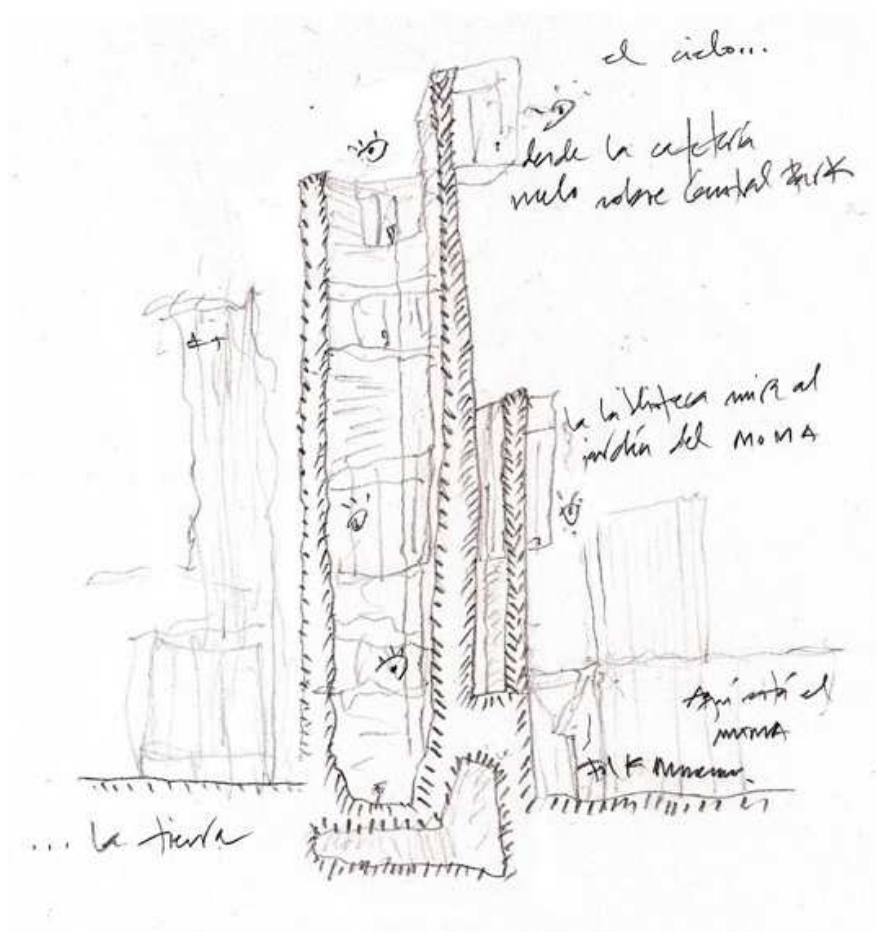 el cielo...
desde la cafetería
vuelo sobre Central Park
la biblioteca mira al
jardín del MOMA
Aquí está el
MOMA
Folk Museum.
... la tierra